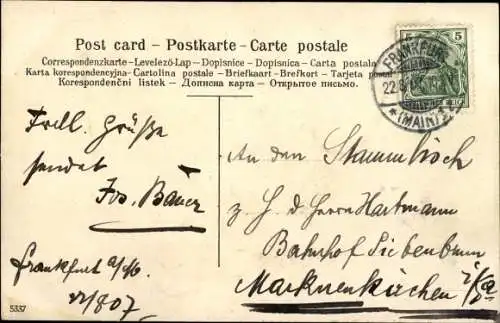 Post card – Postkarte – Carte postale
Correspondenzkarte – Levelező-Lap – Dopisnice – Dopisnica – Carta postala
Karta korespondencyjna – Cartolina postale – Briefkaart – Brefkort – Tarjeta postal
Korespondenční listek – Дописна карта – Открытое письмо.
5 5
FRANKFURT
22.8
*(MAIN)1
Frdl. Grüße
sendet
Jos. Bauer
Frankfurt a/M
22/8 07
An den Stammtisch
z. H. d. Herrn Hartmann
Bahnhof Siebenbrunn
Markneukirchen i/Sa
5337